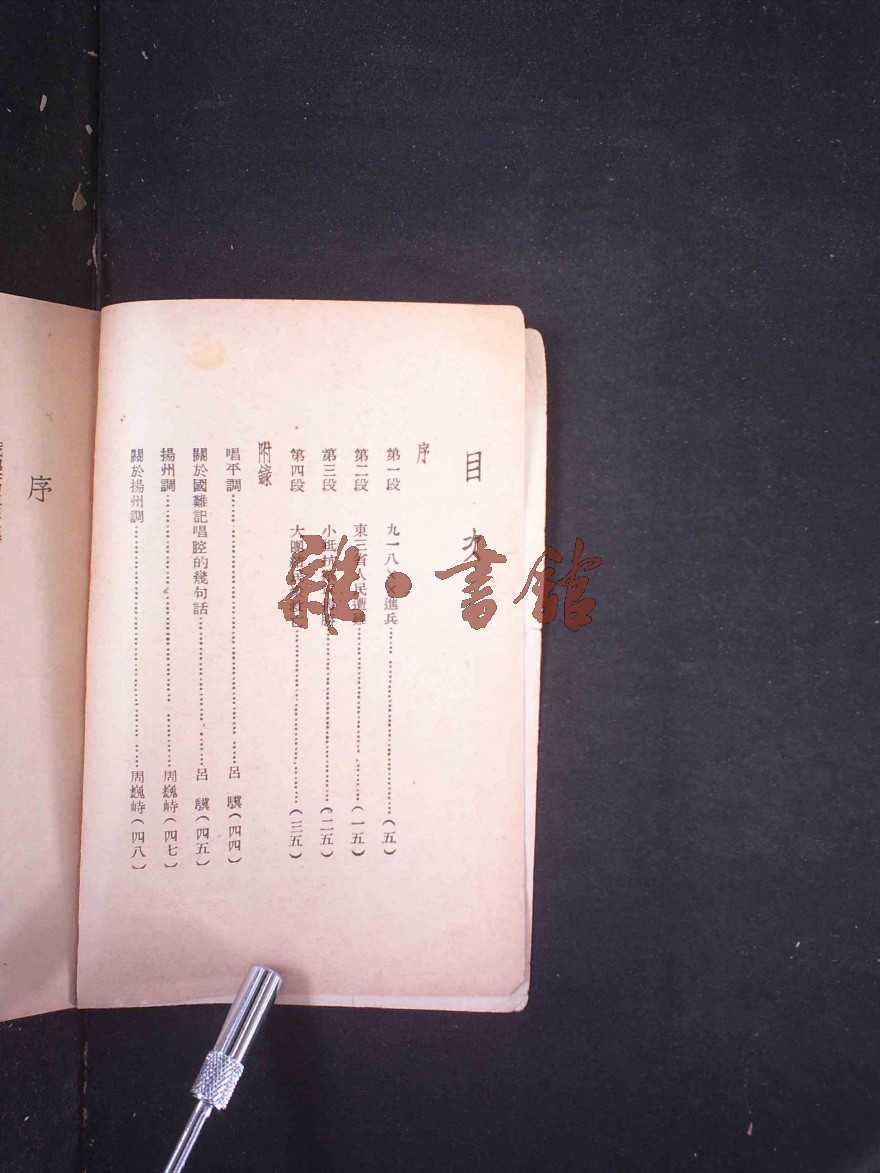 目次
序
第一段 九一八××進兵……………………(五)
第二段 東三省人民遭難……………………(一五)
第三段 小抵抗……………………(二五)
第四段 大團結……………………(三五)
附錄
唱平調……………………呂 驥(四四)
關於國難記唱腔的幾句話……………………呂 驥(四五)
揚州調……………………周巍峙(四七)
關於揚州調……………………周巍峙(四八)
序
雜·書館